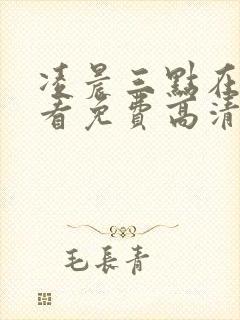 凌晨三點在
看免費高清
毛長青